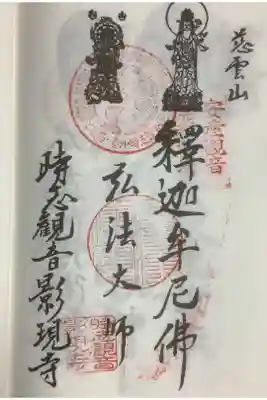 慈雲山
釋迦牟尼佛
弘法大師
時志觀音影現寺
安産観音